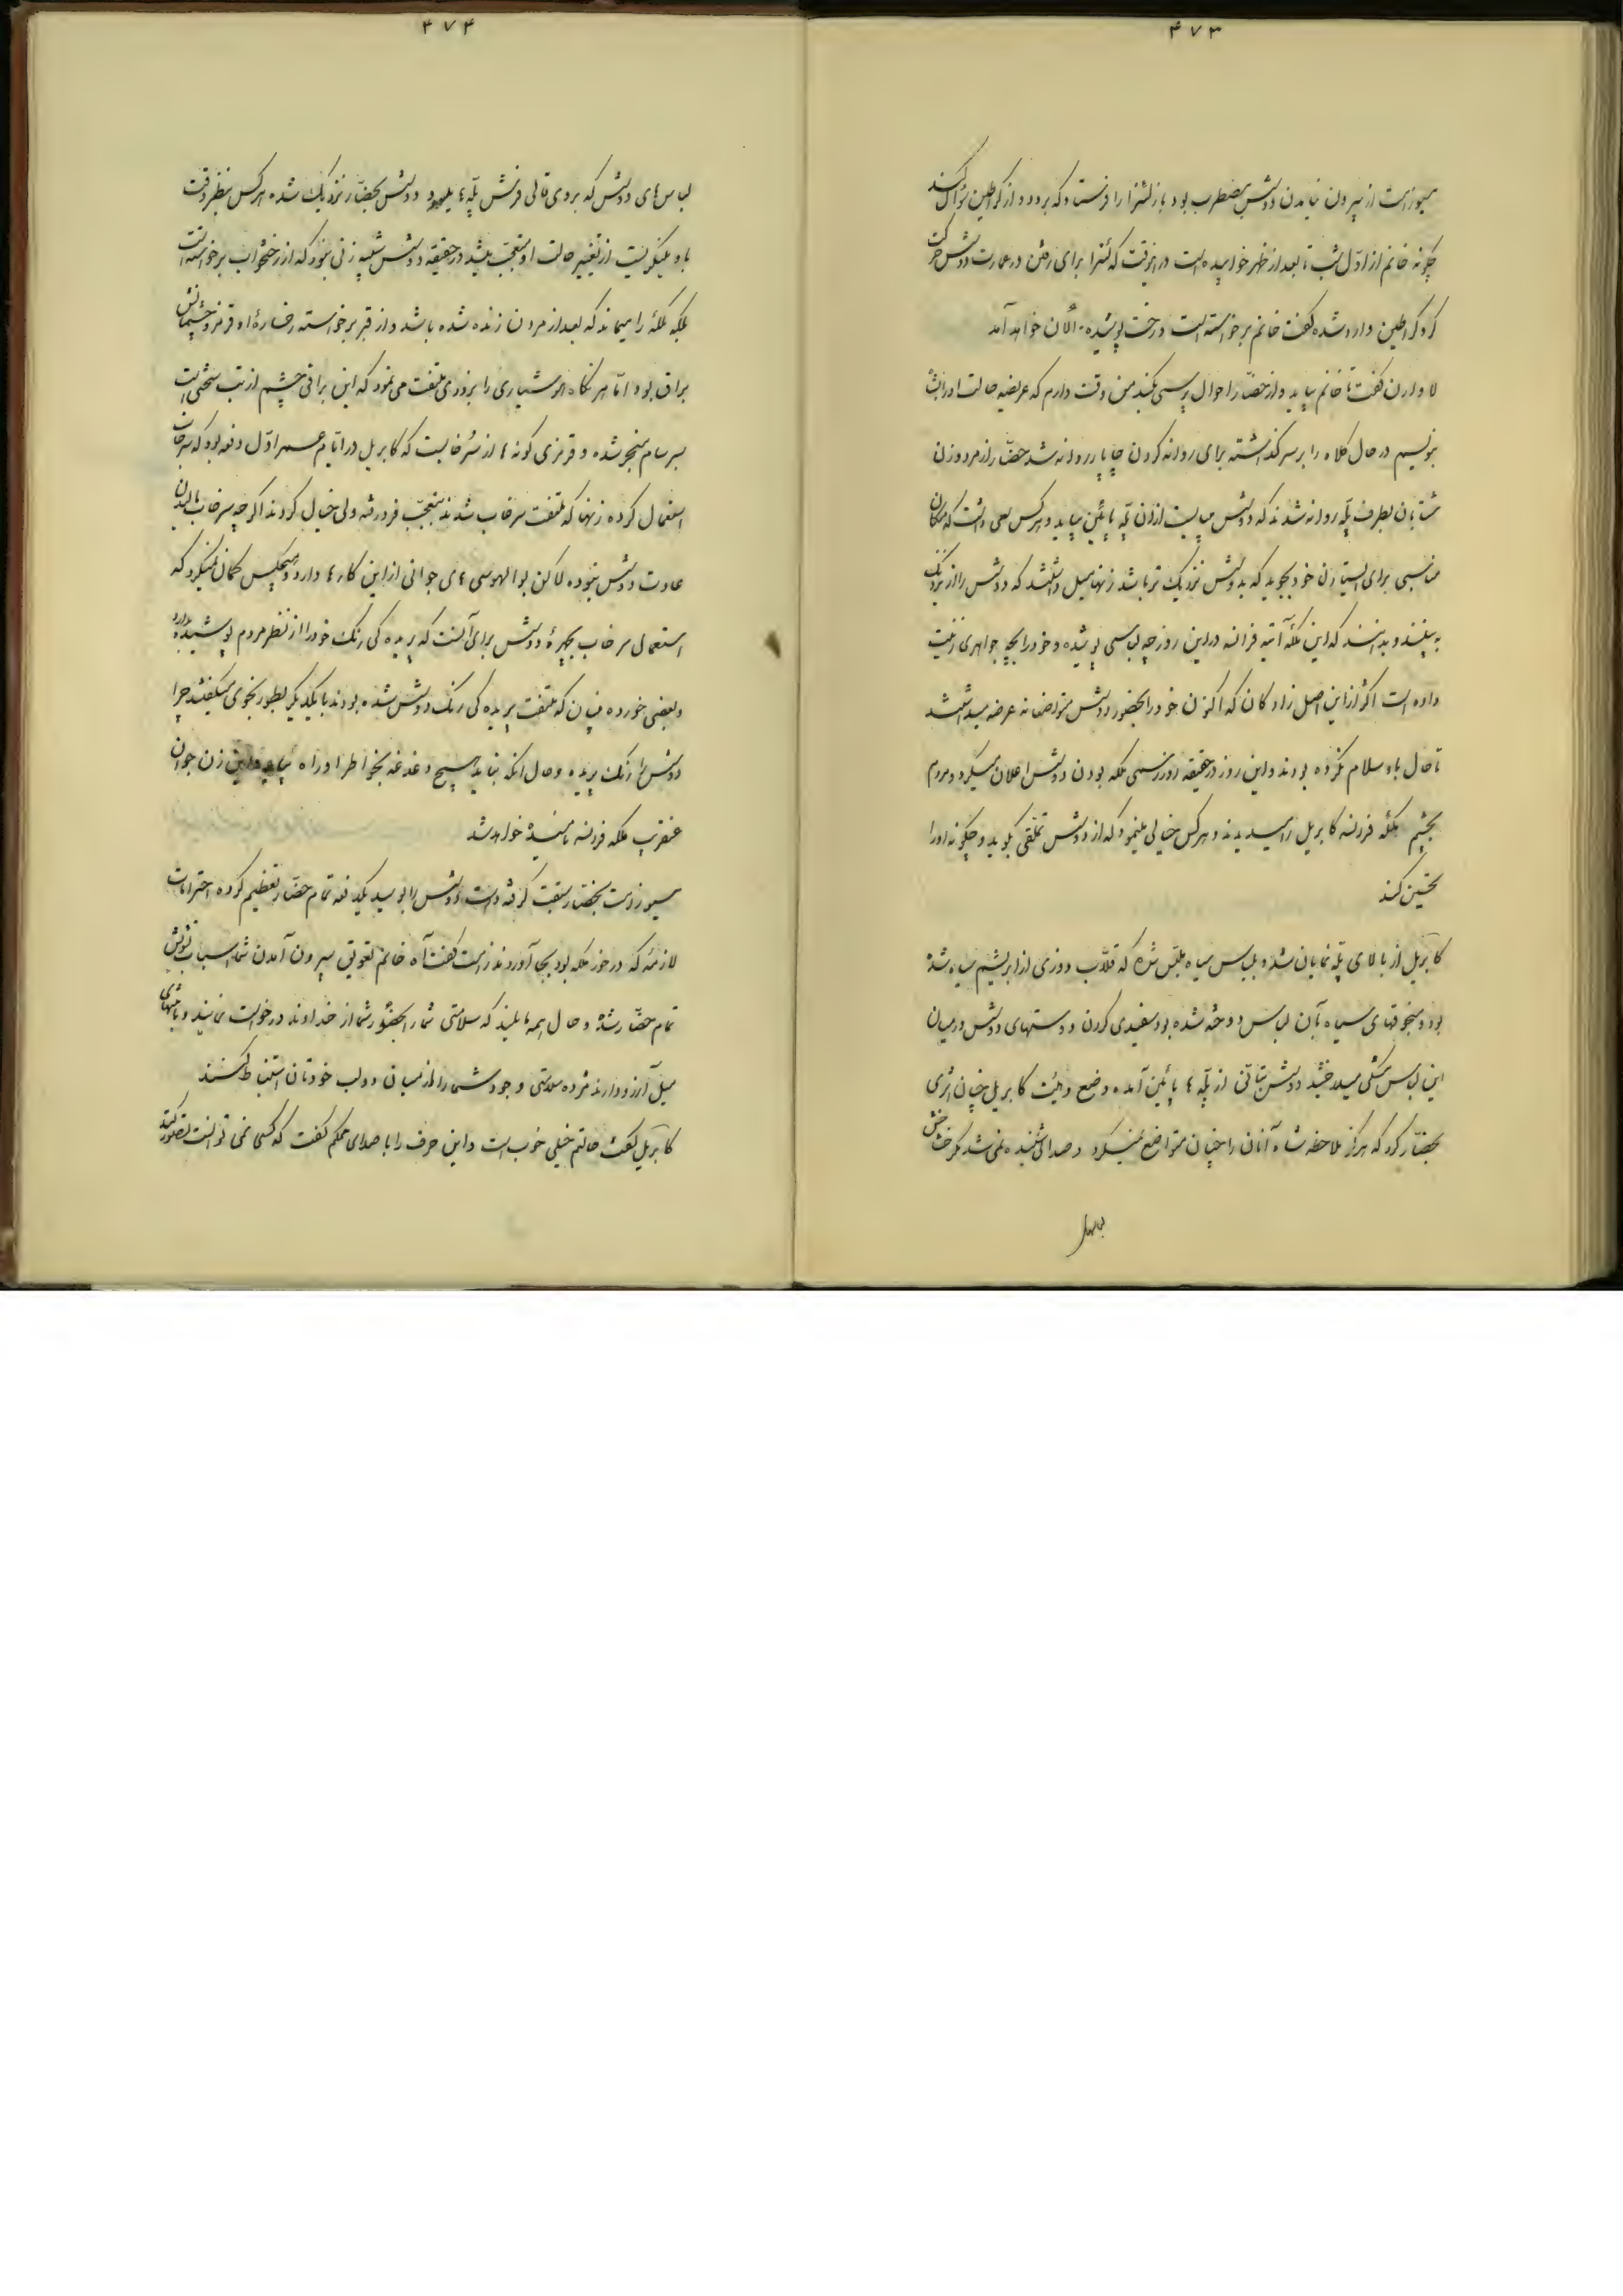 ۴۷۳
میوزرست از بیرون نیامدن دوشس مضطرب بود باز لشترا را فرستاد که برود و از کراطین سؤال کند
چگونه خانم از اوّل شب تا بعد از ظهر خوابیده است در انوقت که لشترا برای رفتن در عمارت دوشس حرکت
کرد کراطین وارد شده گفت خانم برخواسته است و رخت پوشیده الآن خواهد آمد
لاوارن گفت تا خانم بیاید و از حضّار احوال پرسی بکند من وقت دارم که عریضه حالت او را بشاه
بنویسم در حال کلاه را بر سر گذاشته برای روانه کردن چاپار روانه شد حضّار از مرد و زن
شتابان بطرف پلّه روانه شدند که دوشس میبایست از ان پلّه پائین بیاید و هرکس سعی داشت که مکان
مناسبی برای ایستادن خود بجوید که بدوشس نزدیک تر باشد زنها میل داشتند که دوشس را از نزدیک
به بینند و بدانند که این ملکه آتیه فرانسه در این روز چه لباسی پوشیده و خود را بچه جواهری زینت
داده است اکثر از این اصل زادگان که اکنون خود را بحضور دوشس متواضعانه عرضه میداشتند
تا حال باو سلام نکرده بودند و این روز در حقیقه روز رسمی ملکه بودن دوشس را اعلان میکرد و مردم
بچشم ملکه فرانسه کابریل را میدیدند و هرکس خیالی مینمود که از دوشس تملّقی بگوید و چگونه او را
تحسین کند
کابریل از بالای پلّه نمایان شد و بلباس سیاه ملبّس شده که قلّاب دوزی از ابریشم سیاه شده
بود و منجوقهای سیاه بآن لباس دوخته شده بود سفیدی گردن و دستهای دوشس در میان
این لباس مشکی میدرخشید دوشس بتأنی از پلّه ها پائین آمده وضع و هیئت کابریل چنان اثری
بحضّار کرد که هرگز ملاحظه شاه آنان را چنان متواضع نمیکرد و صدائی شنیده نمی شد مگر خش خش
۴۷۴
لباس های دوشس که بروی قالی فرش پلّه ها میسود دوشس بحضّار نزدیک شده هرکس بنظر دقت
باو مینگریست از تغییر حالت او متعجّب میشد در حقیقه دوشس شبیه زنی نبود که از رختخواب برخواسته است
بلکه ملکهٔ را میماند که بعد از مردن زنده شده باشد و از قبر برخواسته رخسارهٔ او قرمز و چشمانش
براق بود امّا هر نگاه هوشیاری را بزودی ملتفت می نمود که این براقی چشم از تب سختی است
بسرسام منجر شده و قرمزی گونه ها از سُرخابیست که کابریل در ایّام عمر اوّل دفعه بود که سرخاب
استعمال کرده زنها که ملتفت سرخاب شدند بتعجّب فرو رفته ولی خیال کردند اگر چه سرخاب مالیدن
عادت دوشس نبوده لاکن بوالهوسی های جوانی از این کارها دارد و هیچکس گمان نمیکرد که
استعمال سرخاب بچهرهٔ دوشس برای آنست که پریده گی رنگ خود را از نظر مردم پوشیده بدارد
و بعضی خورده بینان که ملتفت پریده گی رنگ دوشس شده بودند با یکدیگر بطور نجوی میگفتند چرا
دوشس را رنگ پریده و حال انکه نباید هیچ دغدغه بخواطر او راه بیابد و این زن جوان
عنقریب ملکه فرانسه نامیده خواهد شد
میوزرست بحضّار سبقت گرفته دست دوشس را بوسید یکدفعه تمام حضّار تعظیم کرده احترامات
لازمهٔ که در خور ملکه بود بجا آوردند زرست گفت آه خانم تعویق بیرون آمدن شما اسباب تشویش
تمام حضّار شده و حال همه مایلند که سلامتی شما را بحضور شما از خداوند درخواست نمایند و بانتهای
میل آرزو دارند مژده سلامتی وجود شما را از میان دو لب خودتان استنباط کنند
کابریل گفت حالتم خیلی خوب است و این حرف را با صدای محکم گفت که کسی نمی توانست تصوّر کند